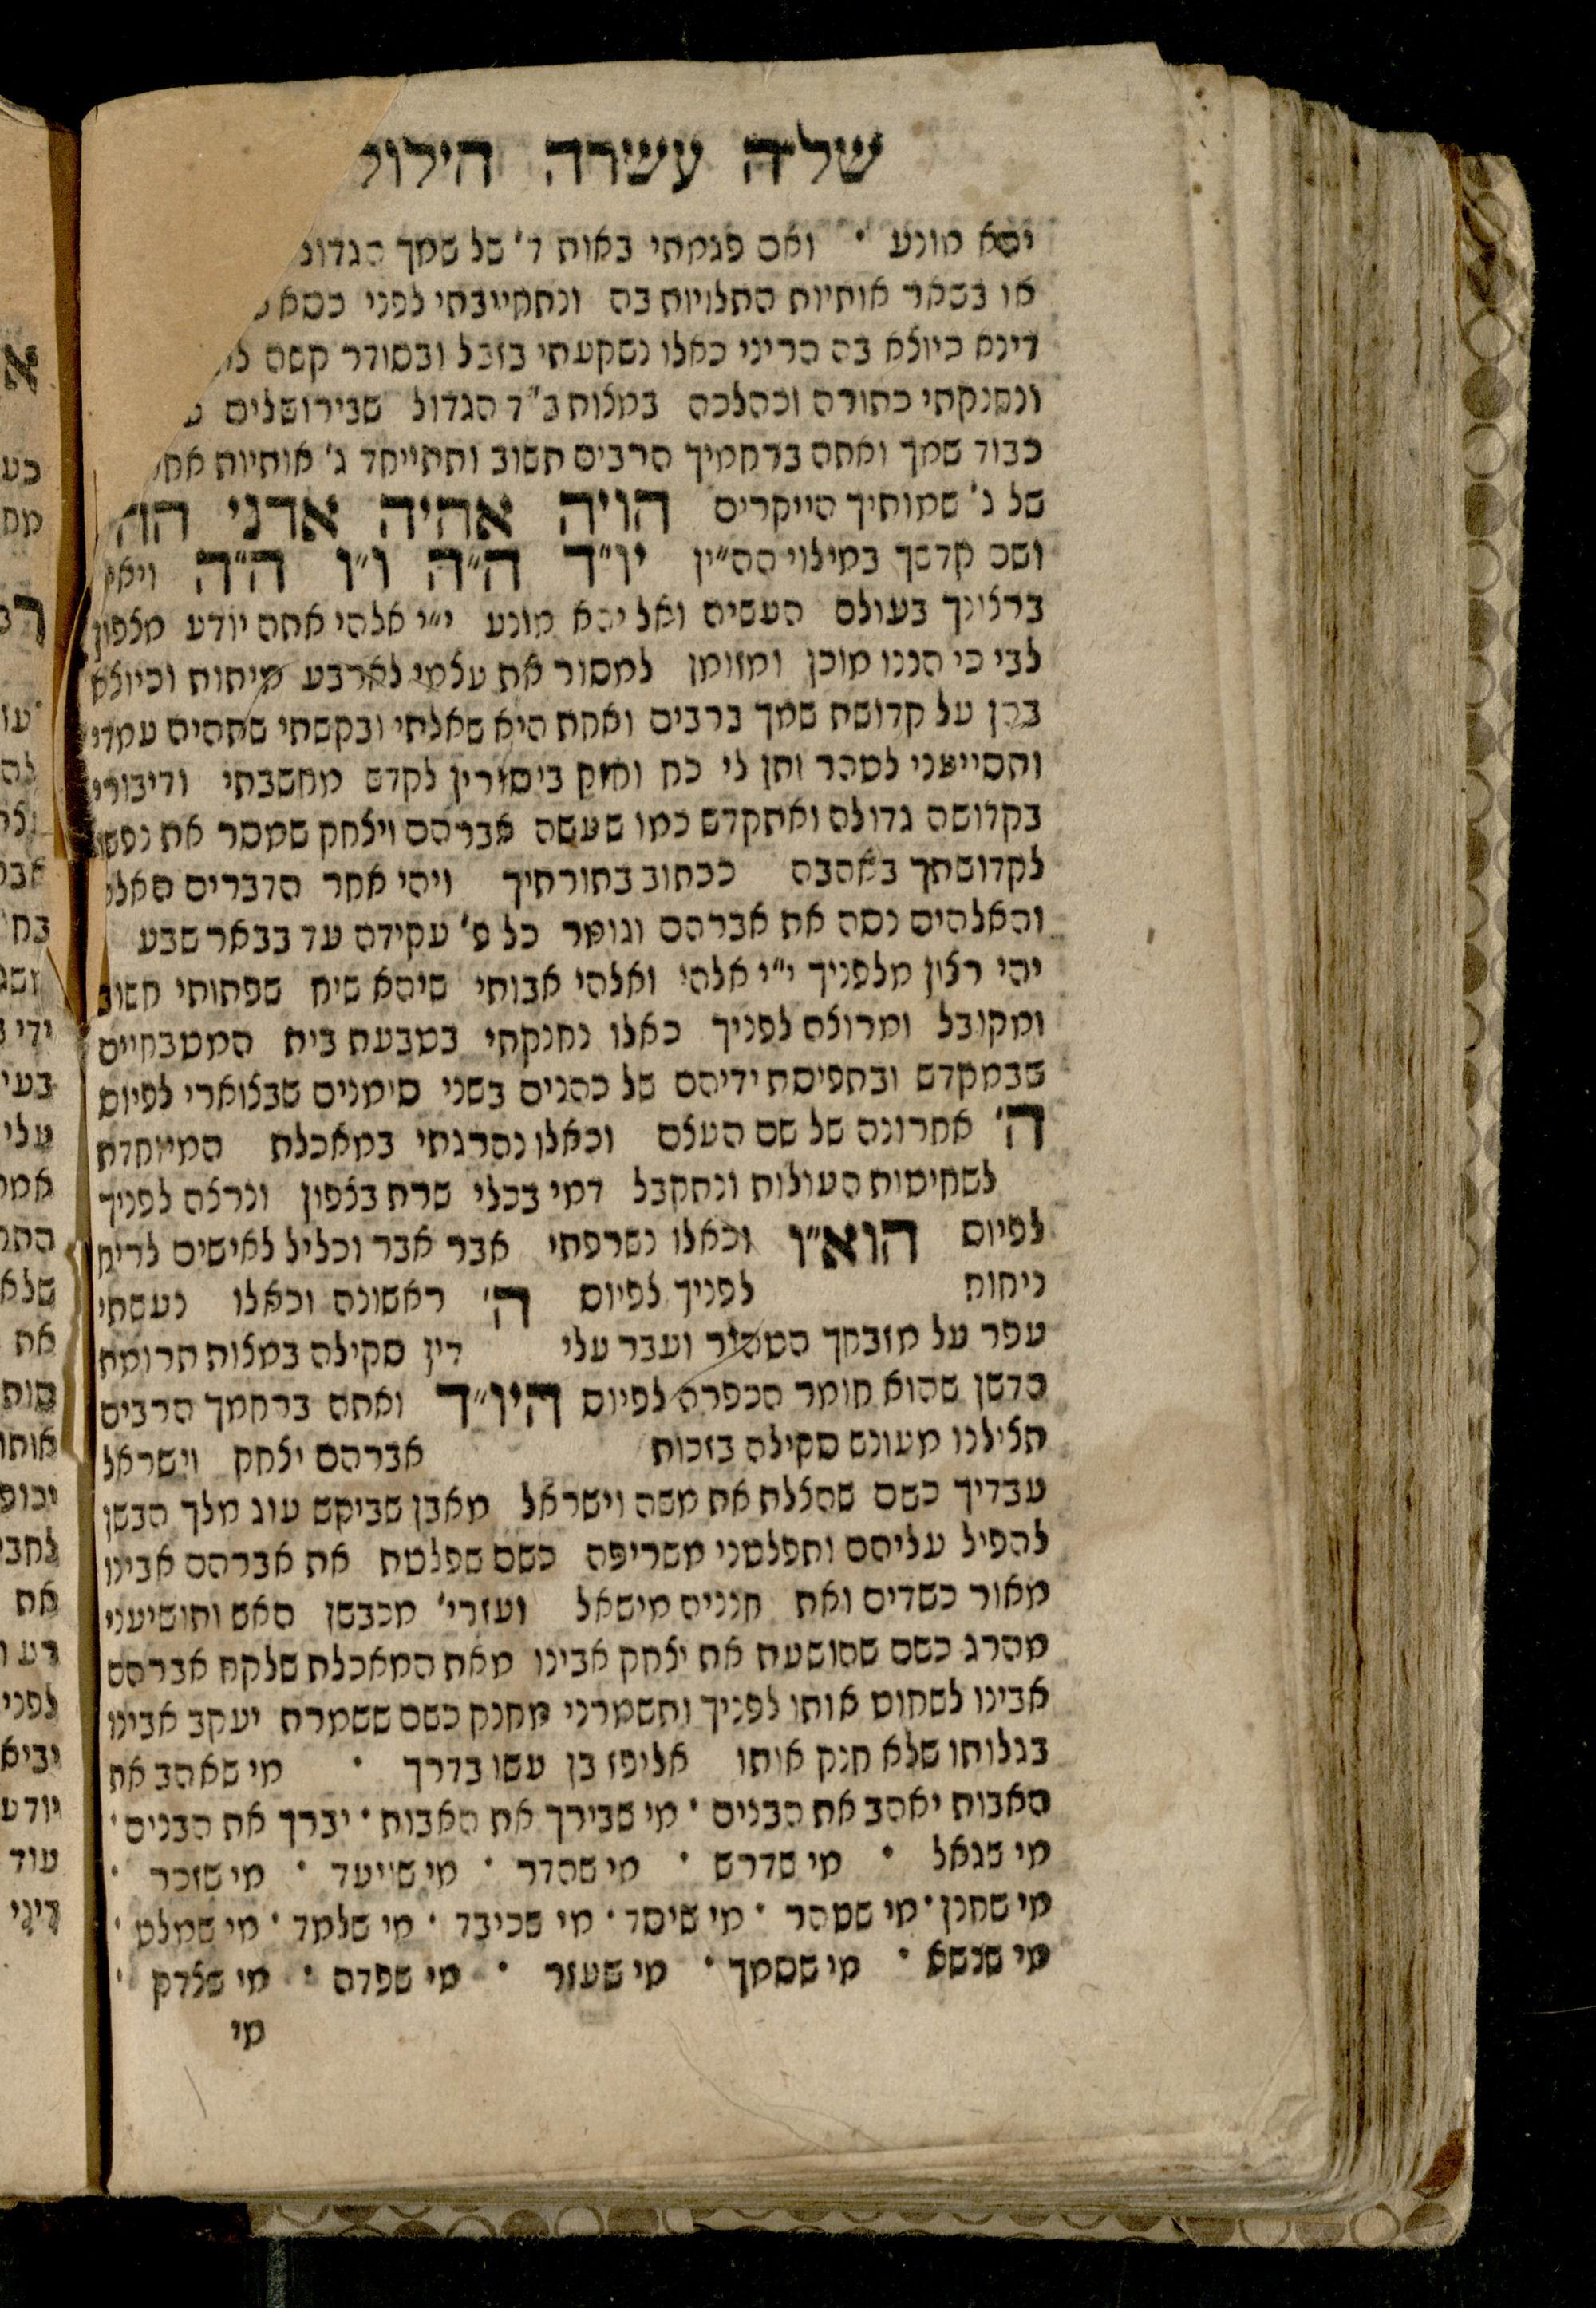 של״ה עשרה הילול
יהא מונע ׳ ואם פגמתי באות ד׳ של שמך הגדול
או בשאר אותיות התלויות בה ונתחייבתי לפני כסא
דינא כיוצא בה הריני כאלו נשקעתי בזבל ובסודר קשה
ונחנקתי כתורה וכהלכה במצות ב״ד הגדול שבירושלים
כבוד שמך ואתה ברחמיך הרבים תשוב ותתייחד ג׳ אותיות
של ג׳ שמותיך הייקרים הויה אהיה אדני הה
ושם קדשך במילוי הה״ין יו״ד ה״ה ו״ו ה״ה
ברצונך בעולם העשיה ואל יהא מונע י״י אלהי אתה יודע מצפון
לבי כי הננו מוכן ומזומן למסור את עצמי לארבע מיתות וכיוצא
בהן על קדושת שמך ברבים ואחת היא שאלתי ובקשתי שתהיה עמדי
והסייעני לטהר ותן לי כח וחזק ביסורין לקדש מחשבתי ודיבורי
בקדושה גדולה ואתקדש כמו שעשה אברהם ויצחק שמסר את נפשו
לקדושתך באהבה ככתוב בתורתיך ויהי אחר הדברים האלה
והאלהים נסה את אברהם וגומר כל פ׳ עקידה עד בבאר שבע
יהי רצון מלפניך י״י אלהי ואלהי אבותי שיהא שיח שפתותי חשוב
ומקובל ומרוצה לפניך כאלו נחנקתי בטבעת בית המטבחיים
שבמקדש ובתפיסת ידיהם של כהנים בשני סימנים שבצוארי לפיוס
ה׳ אחרונה של שם העצם וכאלו נהרגתי במאכלת המיוחדת
לשחיטות העולות ונתקבל דמי בכלי שרת בצפון ונרצה לפניך
לפיוס הוא״ו וכאלו נשרפתי אבר אבר וכליל לאישים לריח
ניחוח לפניך לפיוס ה׳ ראשונה וכאלו נעשתי
עפר על מזבחך הטהור ועבר עלי דין סקילה במצות תרומת
הדשן שהוא חומר הכפרה לפיוס היו״ד ואתה ברחמך הרבים
תצילנו מעונש סקילה בזכות אברהם יצחק וישראל
עבדיך כשם שהצלת את משה וישראל מאבן שביקש עוג מלך הבשן
להפיל עליהם ותפלטני משריפה כשם שפלטת את אברהם אבינו
מאור כשדים ואת חנניה מישאל ועזרי׳ מכבשן האש ותושיעני
מהרג כשם שהושעת את יצחק אבינו מאת המאכלת שלקח אברהם
אבינו לשחוט אותו לפניך ותשמרני מחנק כשם ששמרת יעקב אבינו
בגלותו שלא חנק אותו אליפז בן עשו בדרך ׳ מי שאהב את
האבות יאהב את הבנים ׳ מי שבירך את האבות ׳ יברך את הבנים ׳
מי שגאל ׳ מי שדרש ׳ מי שהדר ׳ מי שויעד ׳ מי שזכר ׳
מי שחנן ׳ מי שטהר ׳ מי שיסד ׳ מי שכיבד ׳ מי שלמד ׳ מי שמלט ׳
מי שנשא ׳ מי שסמך ׳ מי שעזר ׳ מי שפדה ׳ מי שצדק ׳
מי